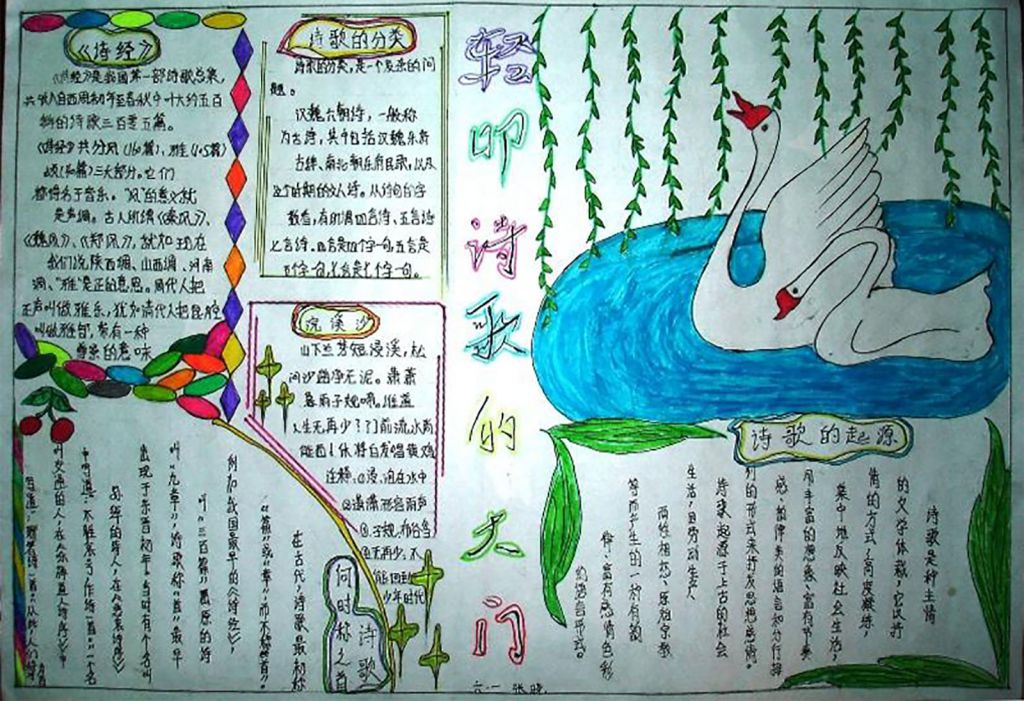 《诗经》
《诗经》是我国第一部诗歌总集，
共收入自西周初年至春秋中叶大约五百
多年的诗歌三百零五篇。
《诗经》共分风（160篇）、雅（105篇）
颂（40篇）三大部分。它们
都得名于音乐。"风"的意义就
是声调。古人所谓《秦风》、
《魏风》、《郑风》，就如现在
我们说陕西调、山西调、河南
调。"雅"是正的意思。周代人把
正声叫做雅乐，犹如清代人把昆腔
叫做雅部，带有一种
尊崇的意味
诗歌的分类
诗歌的分类，是一个复杂的问
题。
汉魏六朝诗，一般称
为古诗，其中包括汉魏乐府
古辞、南北朝乐府民歌，以及
这个时期的文人诗。从诗句的字
数看，有所谓四言诗、五言诗
七言诗。四言是四个字一句，五言是
五个字一句，七言是七个字一句。
浣溪沙
山下兰芽短浸溪，松
间沙路净无泥。萧萧
暮雨子规啼。谁道
人生无再少？门前流水尚
能西！休将白发唱黄鸡
注释：①浸：泡在水中
②潇潇：形容雨声
③子规：布谷鸟
④无再少：不
能回到
少年时代
轻叩诗歌的大门
诗歌的起源
诗歌是种主情
的文学体裁，它以抒
情的方式，高度凝练，
集中地反映社会生活，
用丰富的想象、富有节奏
感、韵律美的语言和分行排
列的形式来抒发思想感情。
诗歌起源于上古的社会
生活，因劳动生产
两性相恋、原始宗教
等而产生的一种有韵
律、富有感情色彩
的语言形式。
何时称诗歌之首
在古代，诗歌最初称
"篇"或"章"，而不称"首"。
例如我国最早的《诗经》，
叫"三百篇"，屈原的诗
叫"九章"，诗歌称"首"最早
出现于东晋初年。当时有个名叫
孙绰的诗人，在《悲哀诗序》
中写道："不胜哀号，作诗一首"
六一 张晓